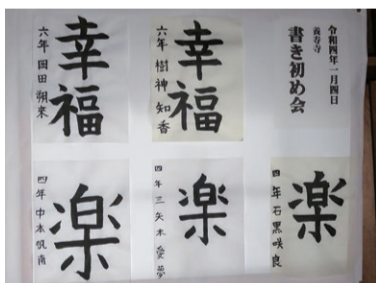 令和四年一月四日
養寿寺
書き初め会
幸福
六年 樹神 知香
幸福
六年 岡田 翔來
楽
四年 石黒咲良
楽
四年 三矢本 愛夢
楽
四年 中本